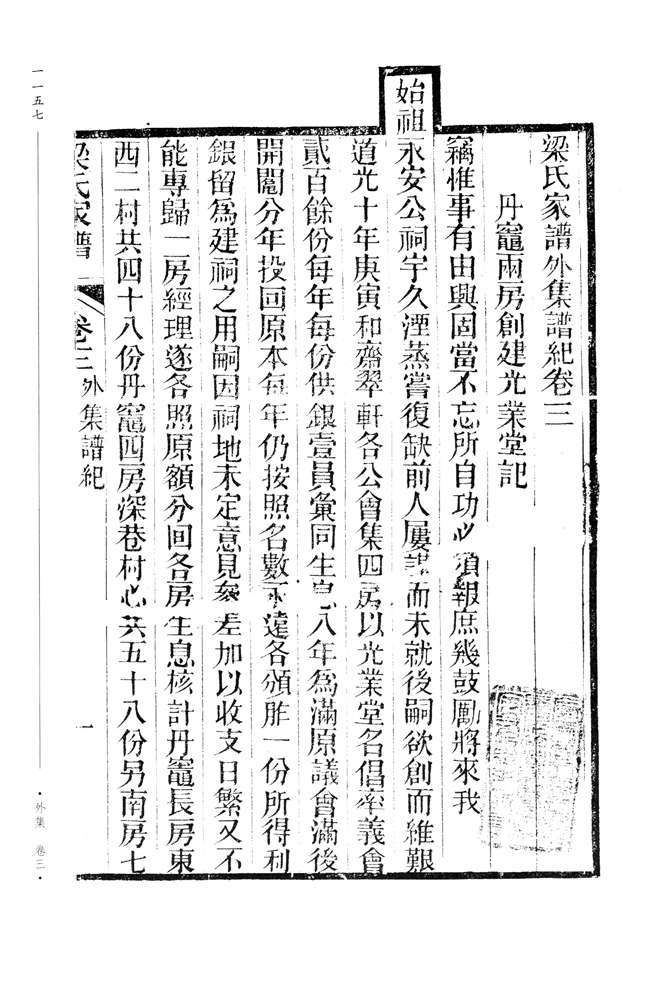 梁氏家譜外集譜紀卷三
丹竈兩房創建光業堂記
竊惟事有由興固當不忘所自功必須報庶幾鼓勵將來我
始祖永安公祠宇久湮蒸嘗復缺前人屢謀而未就後嗣欲創而維艱
道光十年庚寅和齋翠軒各公會集四房以光業堂名倡率義會
貳百餘份每年每份供銀壹員彙同生息八年爲滿原議會滿後
開鬮分年投回原本每年仍按照名數不遠各頒胙一份所得利
銀留爲建祠之用嗣因祠地未定意見參差加以收支日繁又不
能專歸一房經理遂各照原額分回各房生息核計丹竈長房東
西二村共四十八份丹竈四房深巷村心共五十八份另南房七
梁氏家譜 卷三 外集譜紀 一
一一五七
·外集 卷三·